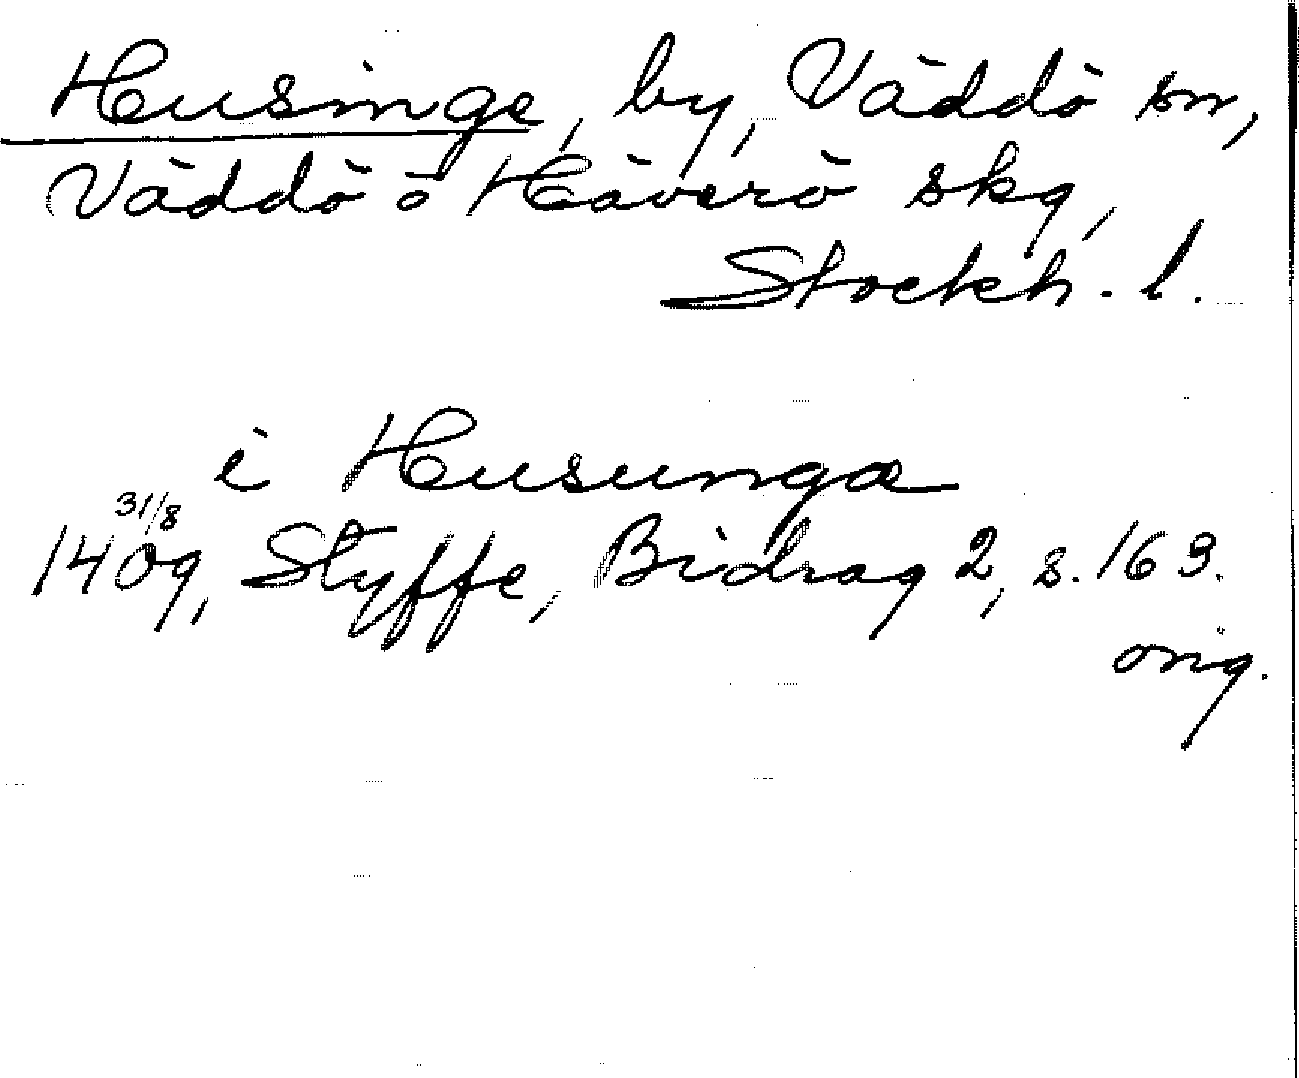 Husinge, by, Väddö sn,
Väddö o Häverö skg,
Stockh. l.
i Husunga
31/8
1409, Styffe, Bidrag 2, s. 163.
orig.